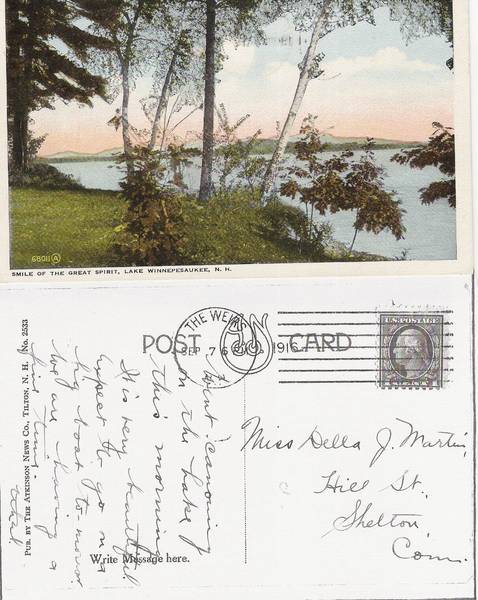 68011 A
SMILE OF THE GREAT SPIRIT, LAKE WINNEPESAUKEE, N. H.
PUB. BY THE ATKINSON NEWS CO., TILTON, N. H. No. 2533
POST CARD
THE WEIRS
SEP 7 6
191
U.S. POSTAGE
Went canoeing
on the Lake
this morning
It is very beautiful.
Expect to go on a
big boat to-morrow
We are having a
fine time.
Write Message here.
Miss Della J. Martin,
Hill St.
Shelton
Conn.